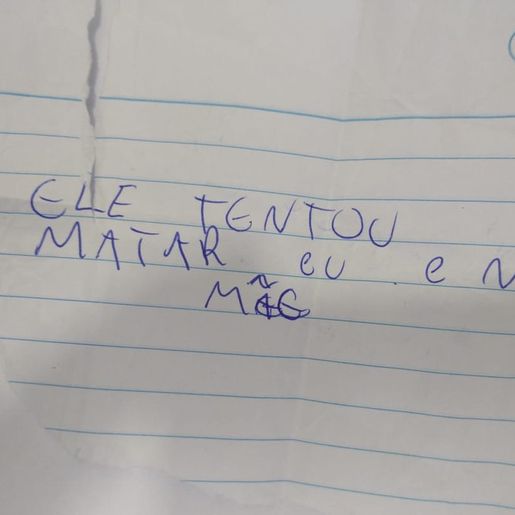 ELE TENTOU
MATAR eu e
MÃE